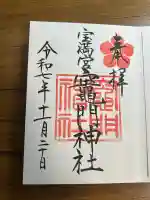 奉拝
宝満宮竈門神社
令和七年十一月二日